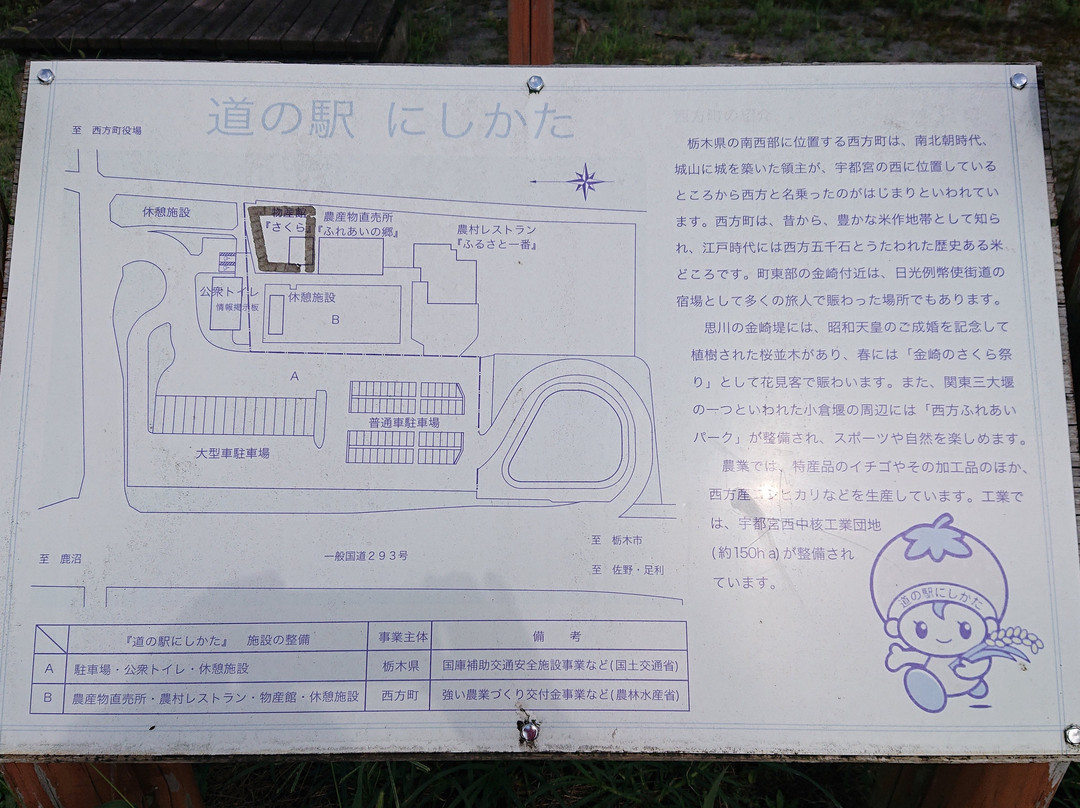 道の駅 にしかた
至 西方町役場
休憩施設
物産館
『さくら』
農産物直売所
『ふれあいの郷』
農村レストラン
『ふるさと一番』
公衆トイレ
情報掲示板
休憩施設
B
A
普通車駐車場
大型車駐車場
至 鹿沼
一般国道293号
至 栃木市
至 佐野・足利
『道の駅にしかた』 施設の整備 事業主体 備 考
A 駐車場・公衆トイレ・休憩施設 栃木県 国庫補助交通安全施設事業など(国土交通省)
B 農産物直売所・農村レストラン・物産館・休憩施設 西方町 強い農業づくり交付金事業など(農林水産省)
栃木県の南西部に位置する西方町は、南北朝時代、
城山に城を築いた領主が、宇都宮の西に位置している
ところから西方と名乗ったのがはじまりといわれてい
ます。西方町は、昔から、豊かな米作地帯として知ら
れ、江戸時代には西方五千石とうたわれた歴史ある米
どころです。町東部の金崎付近は、日光例幣使街道の
宿場として多くの旅人で賑わった場所でもあります。
思川の金崎堤には、昭和天皇のご成婚を記念して
植樹された桜並木があり、春には「金崎のさくら祭
り」として花見客で賑わいます。また、関東三大堰
の一つといわれた小倉堰の周辺には「西方ふれあい
パーク」が整備され、スポーツや自然を楽しめます。
農業では、特産品のイチゴやその加工品のほか、
西方産コシヒカリなどを生産しています。工業で
は、宇都宮西中核工業団地
(約150ha)が整備され
ています。
道の駅にしかた